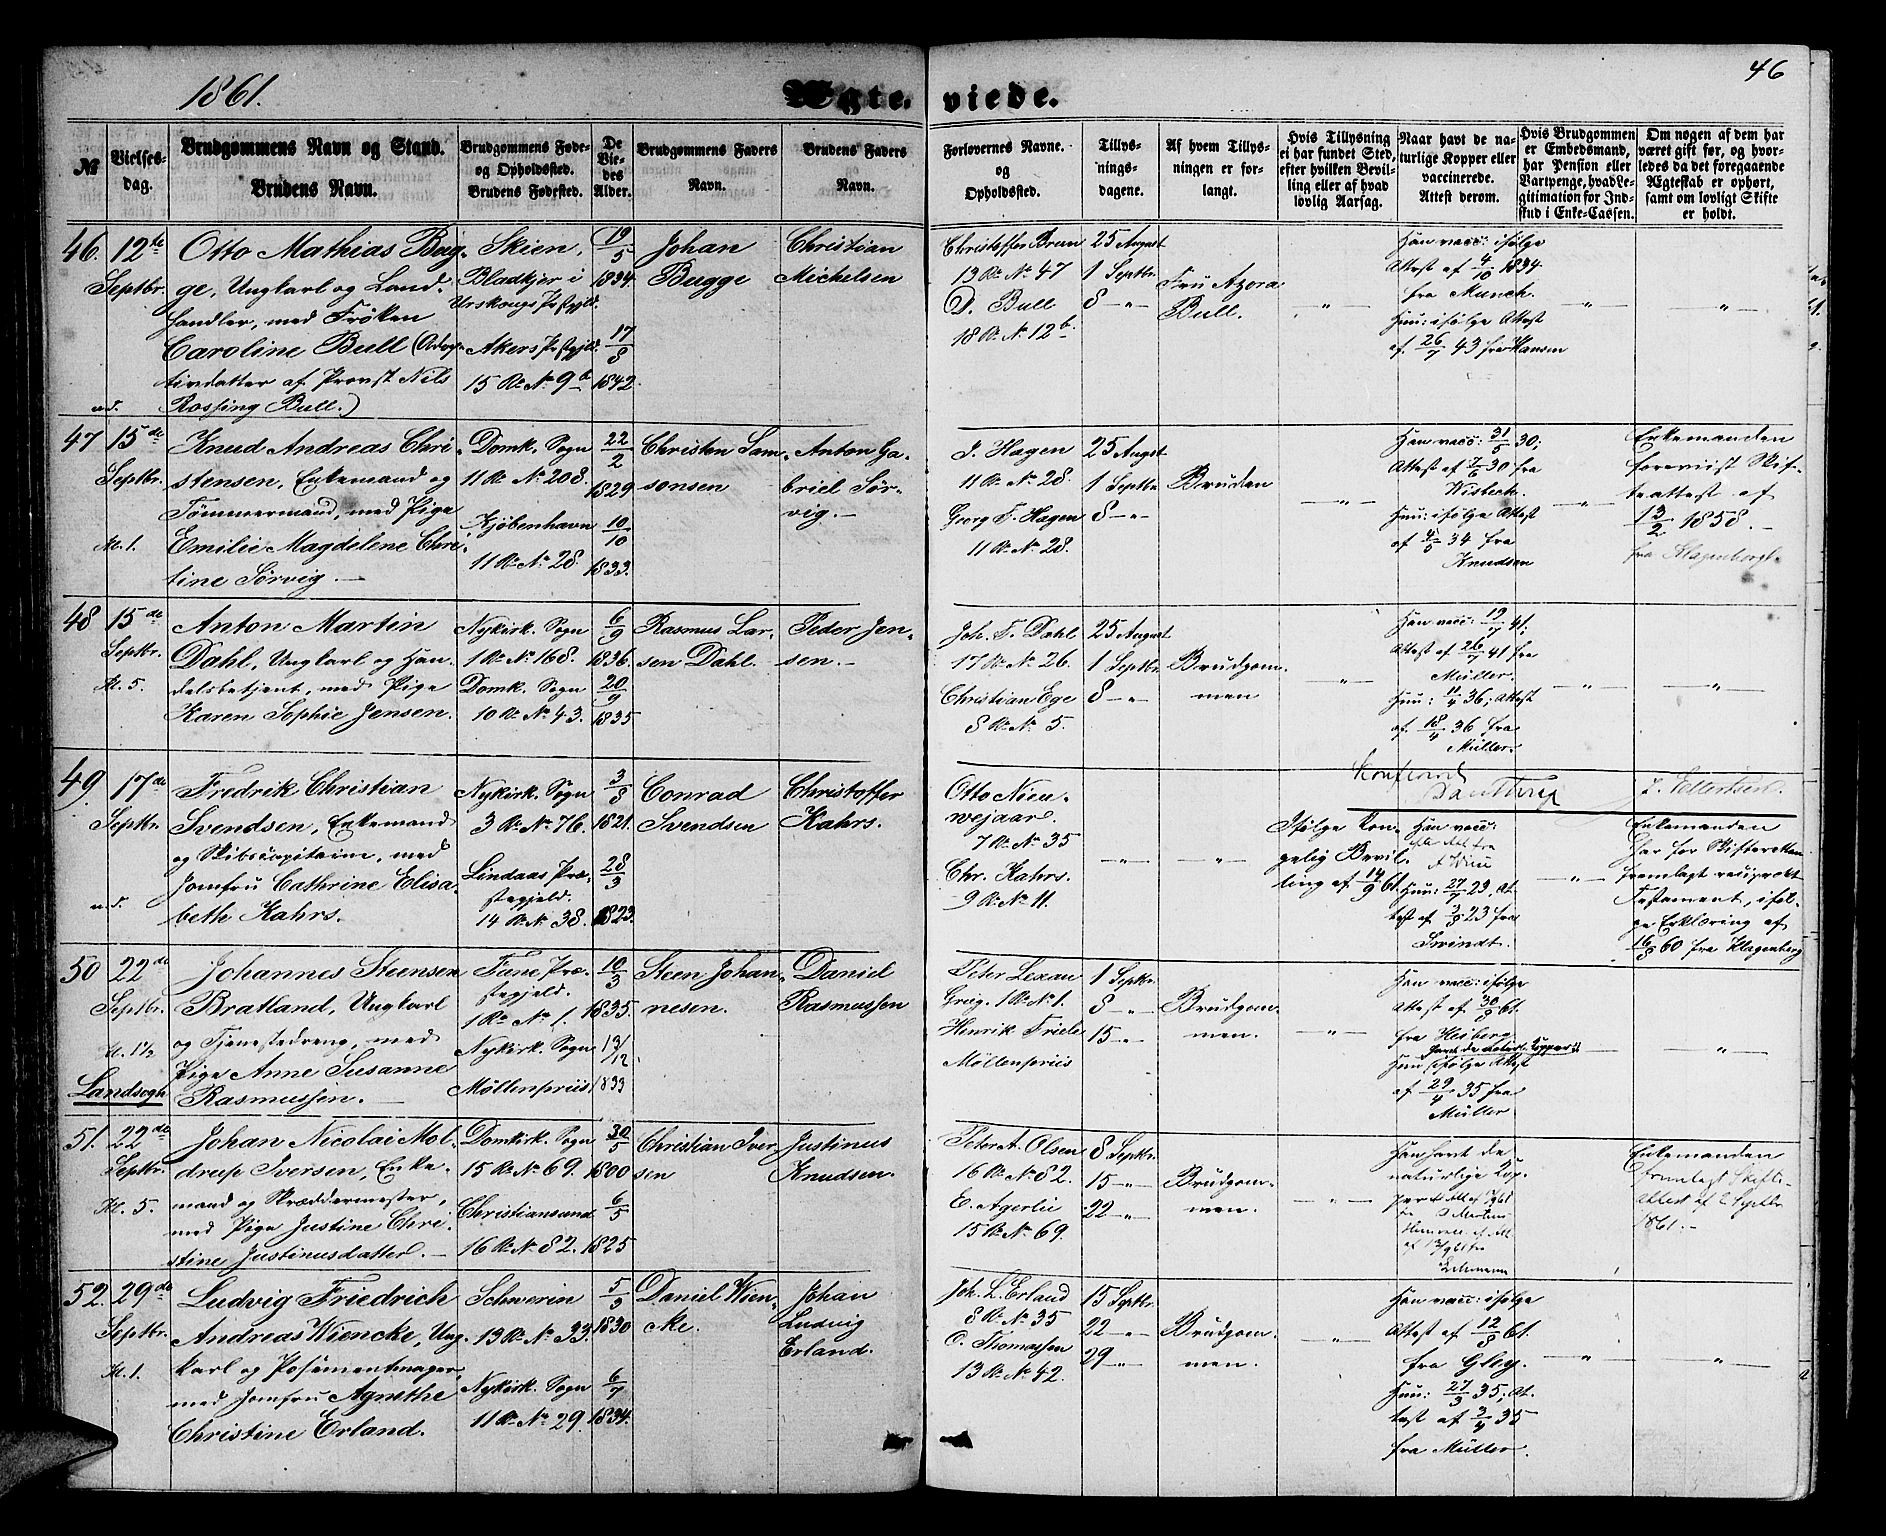 1861.
Ægte-
viede.
46
№
Vielses-
dag.
Brudgommens Navn og Stand.
Brudens Navn.
Brudgommens Føde-
og Opholdssted.
Brudens Fødested.
De
Vie-
des
Alder.
Brudgommens Faders
Navn.
Brudens Faders
Navn.
Forlovernes Navne.
og
Opholdssted.
Tillys-
nings-
dagene.
Af hvem Tillys-
ningen er for-
langt.
Hvis Tillysning
ei har fundet Sted,
efter hvilken Bevil-
ling eller af hvad
lovlig Aarsag.
Naar havt de na-
turlige Kopper eller
vaccinerede.
Attest derom.
Hvis Brudgommen
er Embedsmand,
har Pension eller
Vartpenge, hvad Le-
gitimation for Ind-
skud i Enke-Cassen.
Om nogen af dem har
været gift før, og hvor-
ledes da det foregaaende
Ægteskab er ophørt,
samt om lovligt Skifte
er holdt.
46.
12te
Septbr.
a.d.
Otto Mathias Bug-
ge, Ungkarl og Land-
handler, med Frøken
Caroline Bull (Adop-
tivdatter af Provst Nils
Rossing Bull.)
Skien,
Bladkjer i
Urskougs Præstgjld.
Akers Præstgjld.
15 R. No 9 b
19/5
1834.
17/8
1842.
Johan
Bugge
Christian
Michelsen
Christoffer Brun
13 R. No 47
D. Bull
18 R. No 12 b.
25 August
1 Septbr.
8 -"-
Fru Azora
Bull.
"
Han vacc: ifølge
Attest af 4/10 1834.
fra Munch.
Hun: ifølge Attest
af 26/7 43 fra Hansen
-"-
-"-
47
15de
Septbr.
Kl. 1.
Knud Andreas Chri-
stensen, Enkemand og
Tømmermand, med Pige
Emilie Magdelene Chri-
tine Sørvig. —
Domk. Sogn
11 R. No 208.
Kjøbenhavn
11 R. No 28.
22/2
1829
10/10
1833.
Christen Sam-
sonsen
Anton Ga-
briel Sør-
vig. —
J. Hagen
11 R. No 28.
Georg F. Hagen
11 R. No 28.
25 Augst
1 Septbr
8 -"-
Bruden
-"-
Han vacc: 31/5 30;
Attest af 7/6 30 fra
Wisbech.
Hun: ifølge Attest
af 4/5 34 fra
Knudsen
-"-
Enkemanden
foreviist Skif-
teattest af
13/2 1858. —
fra Klagenberg.
48
15de
Septbr.
Kl. 5.
Anton Martin
Dahl, Ungkarl og Han-
delsbetjent, med Pige
Karen Sophie Jensen.
Nykirk. Sogn
1 R. No 168.
Domk. Sogn
10 R. No 43.
6/9
1836.
20/9
1835
Rasmus Lar-
sen Dahl.
Peder Jen-
sen. —
Joh. F. Dahl
17 R. No 26.
Christian Ege
8 R. No 5.
25 August
1 Septbr.
8 -"-
Brudgom-
men
-"-
Han vacc: 19/7 41;
Attest af 26/7 41 fra
Müller.
Hun: 11/4 36; Attest
af 18/4 36 fra
Müller.
-"-
-"-
49.
17de
Septbr.
a.d.
Fredrik Christian
Svendsen, Enkemand
og Skibscapitaine, med
Jomfru Cathrine Elisa-
beth Kahrs.
Nykirk. Sogn
3 R. No 76.
Lindaas Præ-
stegjeld.
14 R. No 38.
3/8
1821.
28/3
1823.
Conrad
Svendsen
Christoffer
Kahrs.
Otto Nien-
wejaar.
7 R. No 35
Chr. Kahrs.
9 R. No 11.
-"-
-"-
Ifølge kon-
gelig Bevil-
ling af 14/9 61.
Han vacc:
Hun: 27/7 23, At-
test af 3/8 23 fra
Svindt.
-"-
Enkemanden
har for Skifteretten
fremlagt reciprokt
Testament, iføl-
ge Erklæring af
16/8 60 fra Klagenberg
50
22de
Septbr.
Kl. 1½
Landsogn
Johannes Steensen
Bratland, Ungkarl
og Tjenestedreng, med
Pige Anne Susanne
Rasmussen. —
Fane Præ-
stegjeld.
1 R. No 1.
Nykirk. Sogn
Møllenpriis
10/3
1835.
13/12
1833
Steen Johan-
nesen.
Daniel
Rasmussen
Peter Lexau
Greg. 1 R. No 1.
Henrik Friele
Møllenpriis
1 Septbr.
8 -"-
15 -"-
Brudgom-
men.
-"-
Han vacc: ifølge
Attest af 30/8 61.
fra Heiberg
havt de naturl. Kopper
Hun ifølge Attest
af 29/4 35 fra
Müller
-"-
51.
22de
Septbr.
Kl. 5.
Johan Nicolai Mol-
drup Iversen, Enke-
mand og Skræddermester,
med Pige Justine Chri-
stine Justinusdatter. —
Domkirk. Sogn
15 R. No 69.
Christiansund
16 R. No 82.
30/5
1800
6/5
1825
Christian Iver-
sen
Justinus
Knudsen.
Peter A. Olsen
16 R. No 82.
E. Agerlie
15 R. No 69.
8 Septbr.
15 -"-
22 -"-
Brudgom-
men.
-"-
Han havt de
naturlige Kop-
per
Lehmann
Enkemanden
fremlagt Skifte-
attest af 2 Septbr
1861. —
52.
29de
Septbr.
Kl. 1.
Ludvig Friedrich
Andreas Wiencke, Ung-
karl og Posementmager,
med Jomfru Agnethe
Christine Erland.
Schwerin
13 R. No 33.
Nykirk. Sogn
11 R. No 29.
5/3
1830
6/7
1834.
Daniel Wien-
cke.
Johan
Ludvig
Erland.
Joh. L. Erland
8 R. No 35
C. Thomassen
13 R. No 42.
15 Septbr.
22 -"-
29 -"-
Brudgom-
men.
"
Han vacc: ifølge
Attest af 12/8 61.
fra Gley.
Hun: 27/3 35; At-
test af 3/4 35
fra Müller.
-"-
"